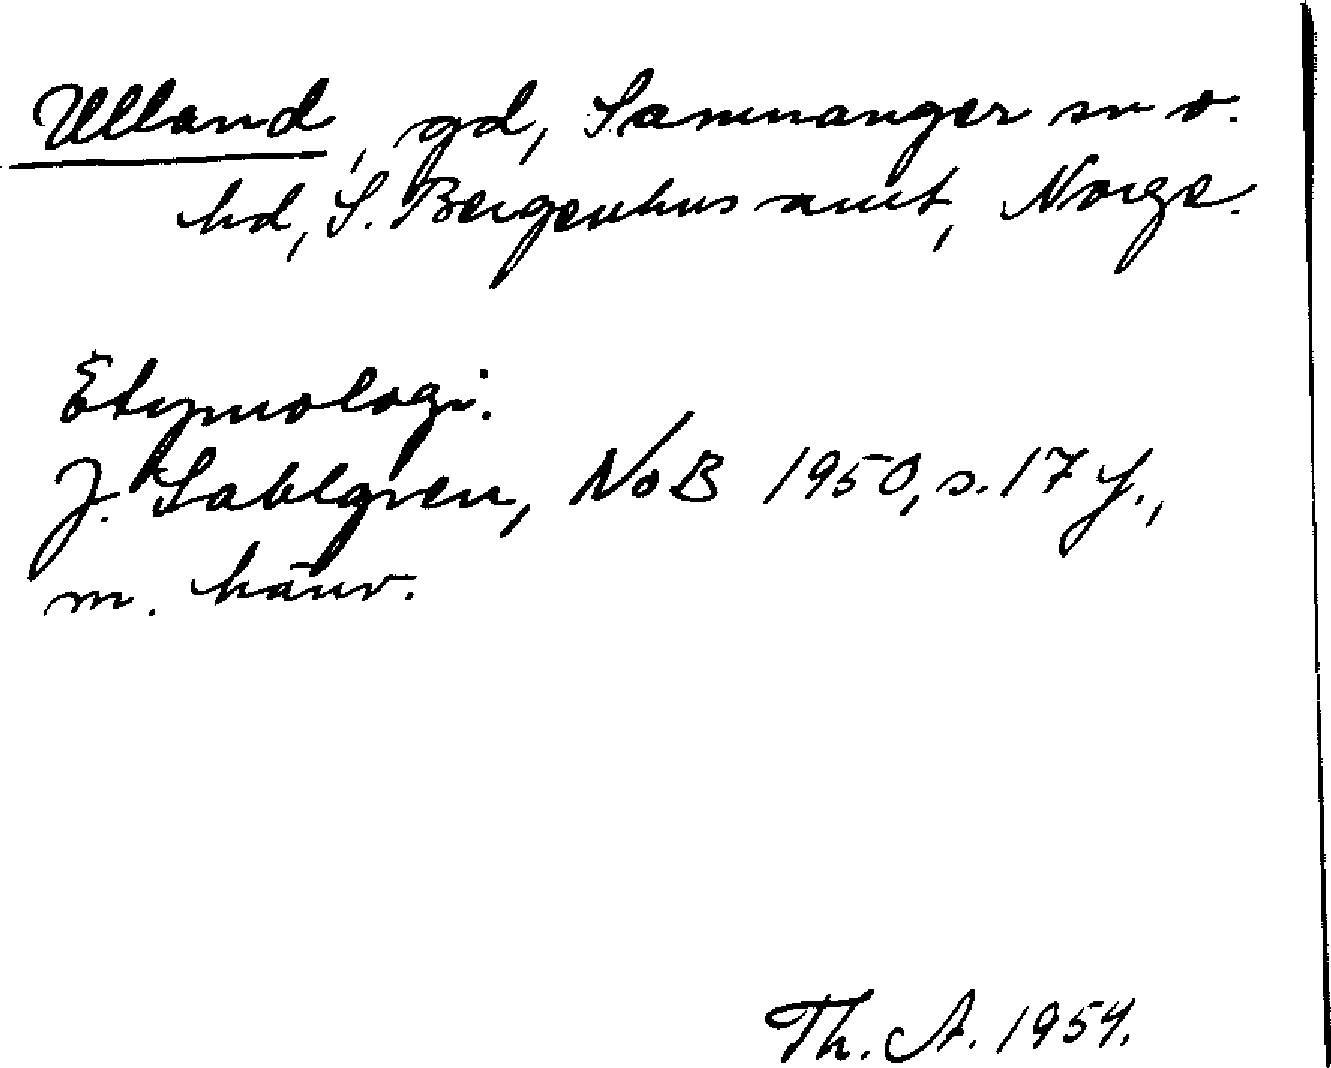 Ulland, gd, Samnanger sn o.
hd, S. Bergenhus amt, Norge.
Etymologi.
J. Sahlgren, NoB 1950, s. 17 f.,
m. hänv.
Th. A. 1954.